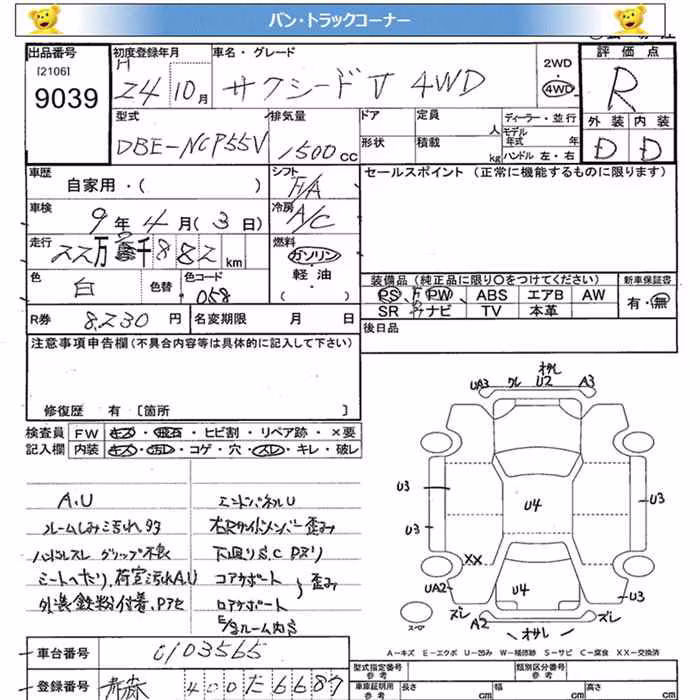 バン・トラックコーナー
出品番号
[2106]
9039
初度登録年月
H
24 10月
車名・グレード
サクシード V 4WD
2WD
4WD
評価点
R
外装 内装
D D
型式
DBE-NCP55V
排気量
1500 cc
ドア
形状
定員
人
積載
kg
ディーラー・並行
モデル年式 年
ハンドル 左・右
車歴
自家用・( )
シフト
F/A
セールスポイント (正常に機能するものに限ります)
車検
9年 4月( 3日)
冷房
A/C
走行
22万 千 882 km
燃料
ガソリン
軽油
( ・ )
色
白
色替
色コード
058
装備品 (純正品に限り○をつけてください)
新車保証書
PS PW ABS エアB AW
SR ナビ TV 本革
有・無
R券
8,230 円
名変期限 月 日
後日品
注意事項申告欄 (不具合内容等は具体的に記入して下さい)
修復歴 有 [箇所 ]
検査員
記入欄
FW キズ・飛石・ヒビ割・リペア跡・×要
内装 キズ・汚レ・コゲ・穴・スレ・キレ・破レ
A.U
ルームしみ汚れ多
ハンドルスレ グリップ不良
シートへたり、荷室汚れA.U
外装鉄粉付着、Pアセ
エンドパネルU
右Rサイドメンバー歪み
下廻りS.C Pヌリ
コアサポート
ロアサポート
歪み
UA3 クレ オサレ U2 A3
U3
U3
U4
U3
XX
UA2
U4
U3
ズレ
A2
オサレ
ズレ
スペア
A－キズ E－エクボ U－凹み W－補修跡 S－サビ C－腐食 XX－交換済
車台番号
0103565
登録番号
青森 400 6687
型式指定番号
類別区分番号
車庫証明用
参考
長さ cm 幅 cm 高さ cm